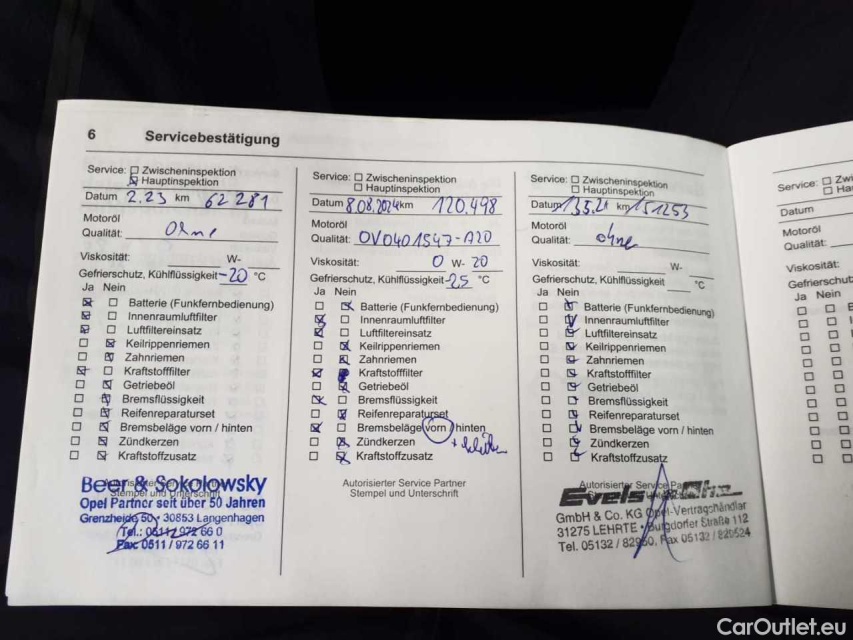 6 Servicebestätigung
Service: ☐ Zwischeninspektion
☒ Hauptinspektion
Datum 2.23 km 62 281
Motoröl
Qualität: ohne
Viskosität: W-
Gefrierschutz, Kühlflüssigkeit -20 °C
Ja Nein
☒ ☐ Batterie (Funkfernbedienung)
☒ ☐ Innenraumluftfilter
☒ ☐ Luftfiltereinsatz
☐ ☒ Keilrippenriemen
☐ ☒ Zahnriemen
☒ ☐ Kraftstofffilter
☐ ☒ Getriebeöl
☐ ☒ Bremsflüssigkeit
☐ ☒ Reifenreparaturset
☐ ☒ Bremsbeläge vorn / hinten
☐ ☒ Zündkerzen
☐ ☒ Kraftstoffzusatz
Stempel und Unterschrift
Beer & Sokolowsky
Opel Partner seit über 50 Jahren
Grenzheide 50 · 30853 Langenhagen
Tel.: 0511 / 972 66 0
Fax: 0511 / 972 66 11
Service: ☐ Zwischeninspektion
☐ Hauptinspektion
Datum 8.08.2024 km 120.498
Motoröl
Qualität: OV0401547-A20
Viskosität: 0 W- 20
Gefrierschutz, Kühlflüssigkeit -25 °C
Ja Nein
☐ ☒ Batterie (Funkfernbedienung)
☒ ☐ Innenraumluftfilter
☒ ☐ Luftfiltereinsatz
☐ ☒ Keilrippenriemen
☐ ☒ Zahnriemen
☒ Kraftstofffilter
☐ ☒ Getriebeöl
☒ ☐ Bremsflüssigkeit
☐ ☒ Reifenreparaturset
☒ ☐ Bremsbeläge vorn / hinten
☐ ☒ Zündkerzen
☐ ☒ Kraftstoffzusatz
Autorisierter Service Partner
Stempel und Unterschrift
Service: ☐ Zwischeninspektion
☐ Hauptinspektion
Datum km 151253
Motoröl
Qualität: ohne
Viskosität: W-
Gefrierschutz, Kühlflüssigkeit °C
Ja Nein
☐ ☒ Batterie (Funkfernbedienung)
☐ ☒ Innenraumluftfilter
☐ ☒ Luftfiltereinsatz
☐ ☒ Keilrippenriemen
☐ ☒ Zahnriemen
☐ ☒ Kraftstofffilter
☐ ☒ Getriebeöl
☐ ☒ Bremsflüssigkeit
☐ ☒ Reifenreparaturset
☐ ☒ Bremsbeläge vorn / hinten
☐ ☒ Zündkerzen
☐ ☒ Kraftstoffzusatz
Autorisierter Service
Evels
GmbH & Co. KG Opel-Vertragshändler
31275 LEHRTE · Burgdorfer Straße 112
Tel. 05132 / Fax 05132 / 829524
Service: ☐
☐
Datum
Motoröl
Qualität:
Viskosität:
Ja Nein
CarOutlet.eu